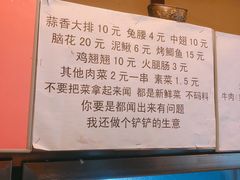 蒜香大排10元 兔腰4元 中翅10元
脑花20元 泥鳅6元 烤鲫鱼15元
鸡翅翅10元 火腿肠3元
其他肉菜2元一串 素菜1.5元
不要把菜拿起来闻 都是新鲜菜 不码料
你要是都闻出来有问题
我还做个铲铲的生意
牛肉